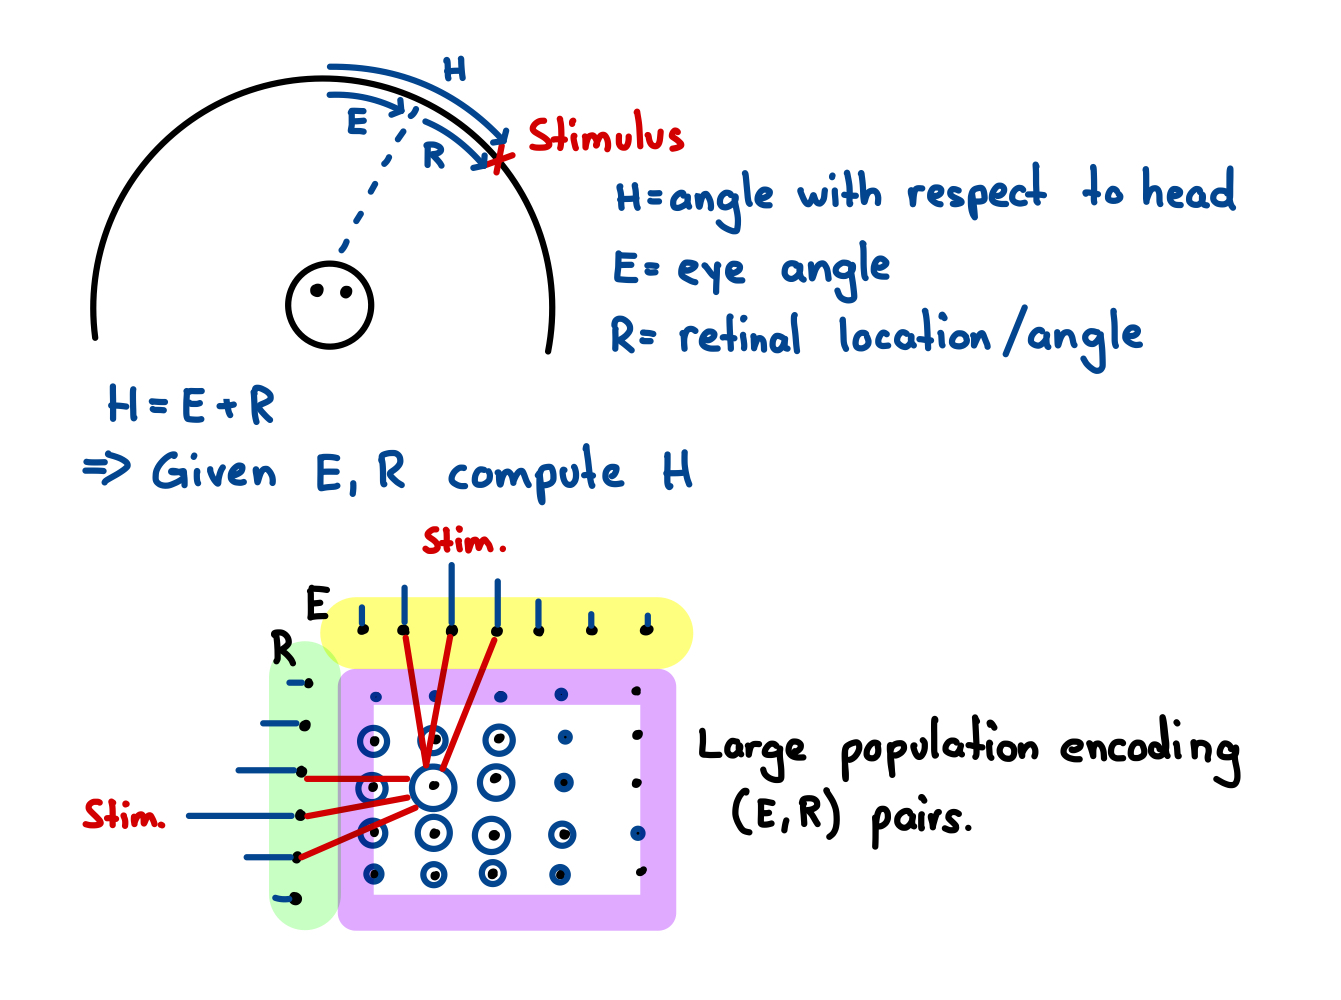 H
E
R
Stimulus
H=angle with respect to head
E= eye angle
R= retinal location/angle
H=E+R
=> Given E, R compute H
Stim.
E
R
Stim.
Large population encoding
(E,R) pairs.